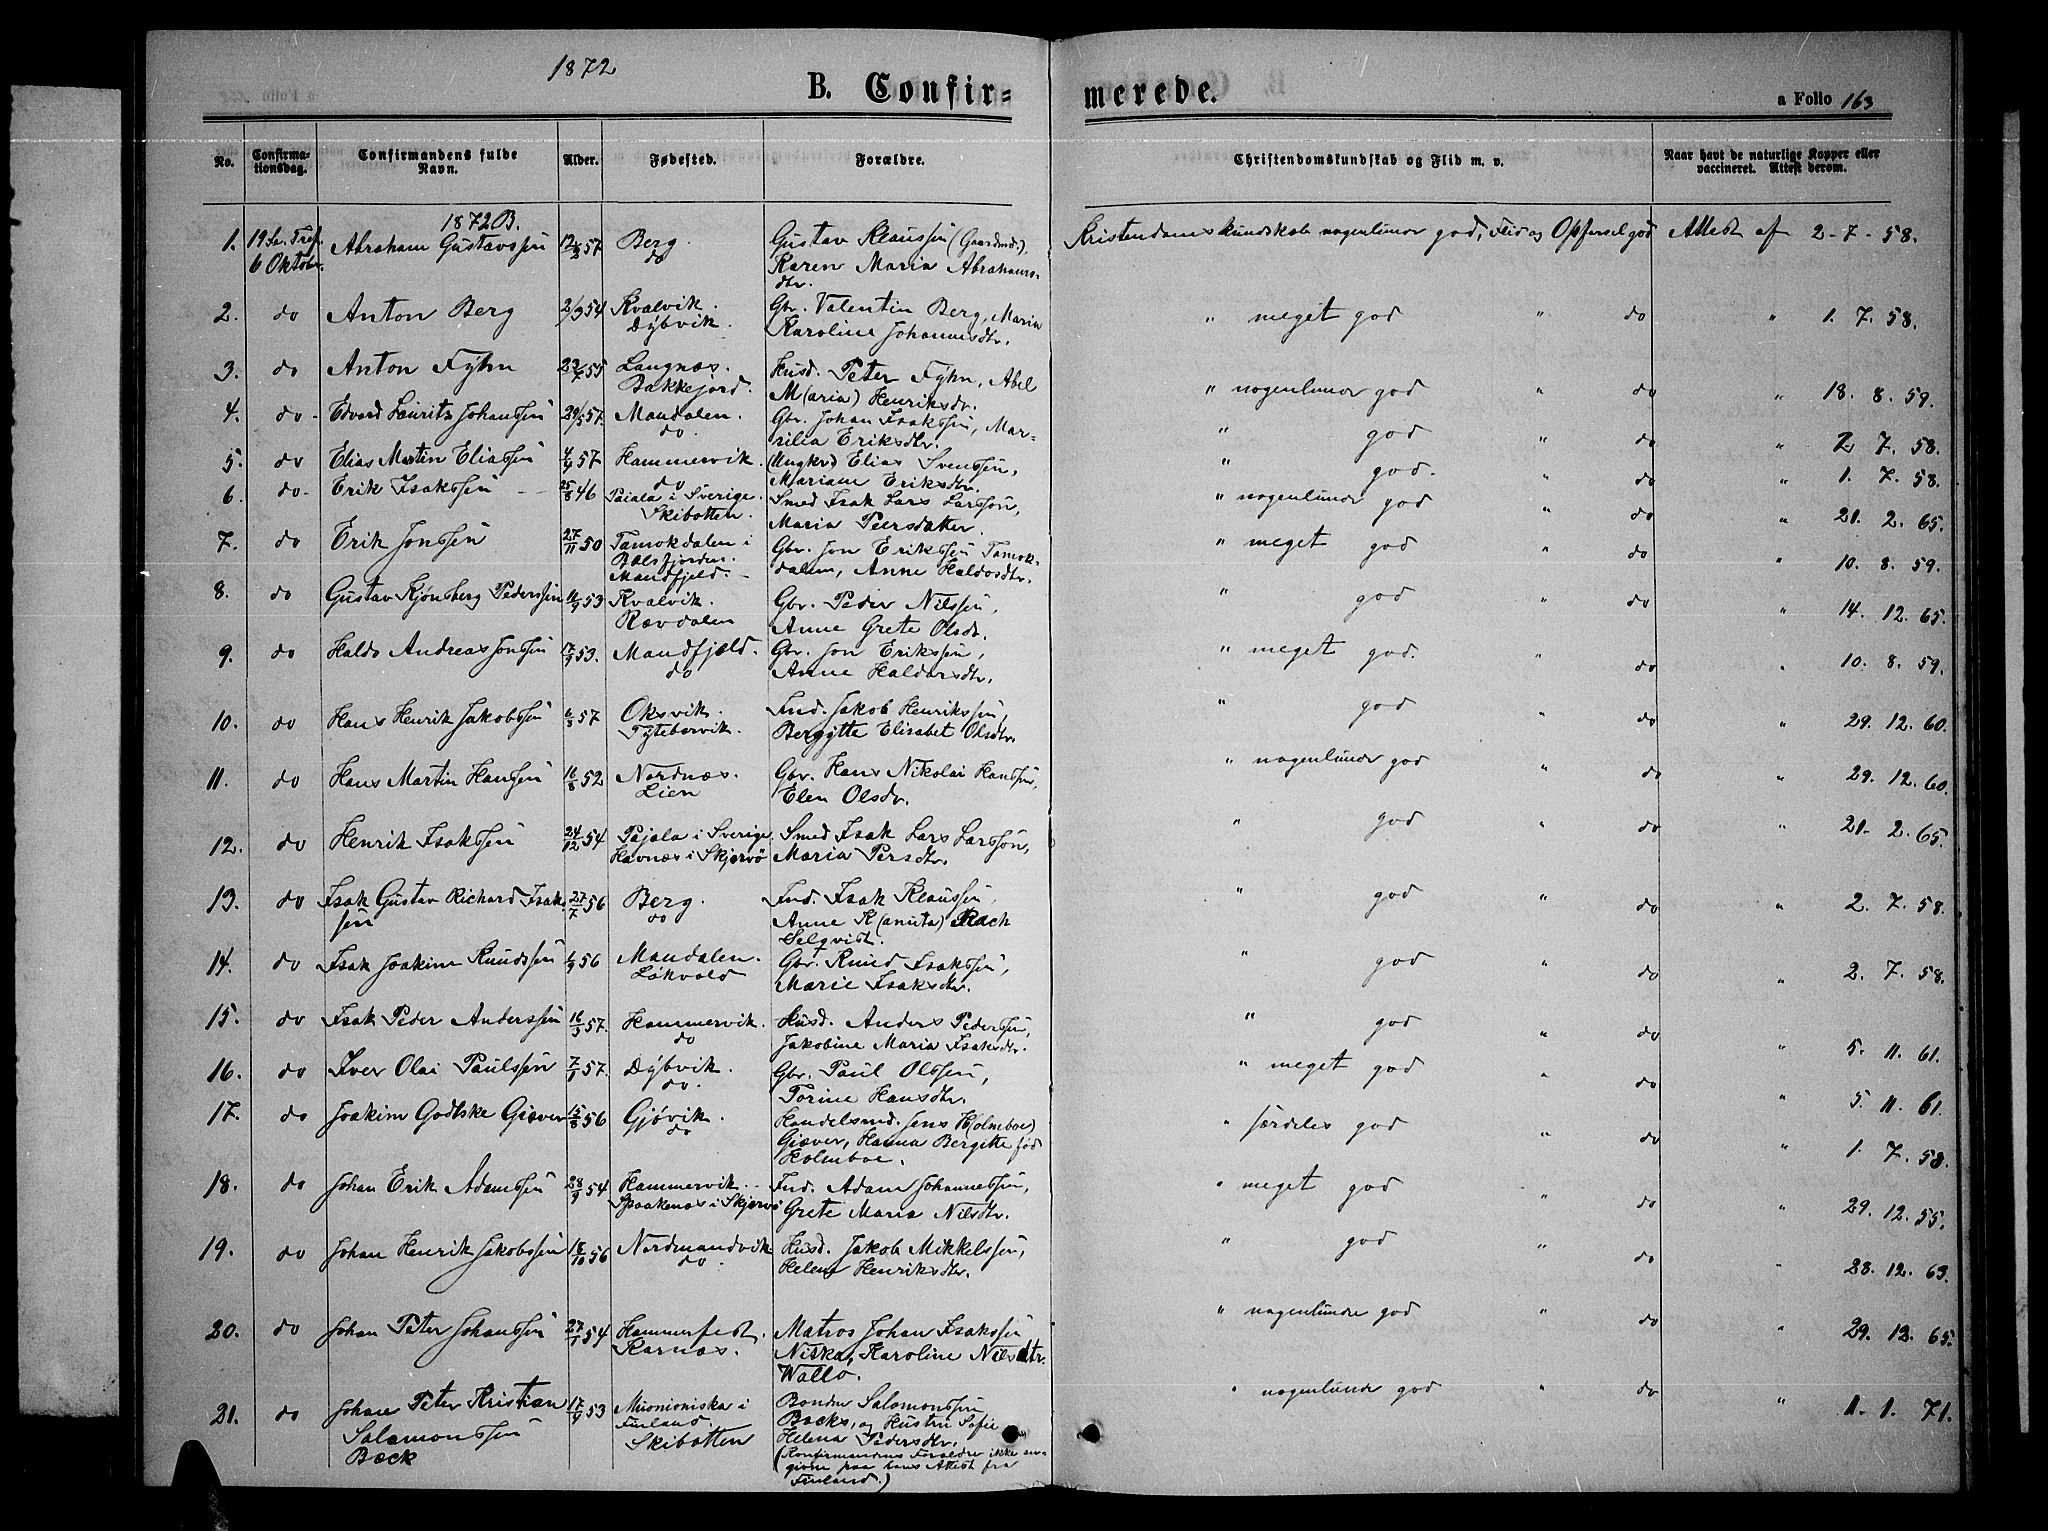 1872
B. Confir=
merede.
a Folio 163
No.
Confirma-
tionsdag.
Confirmandens fulde
Navn.
Alder.
Fødested.
Forældre.
Christendomskundskab og Flid m. v.
Naar havt de naturlige Kopper eller
vaccineret. Attest derom.
1872 B.
1. 19 Sø. Tref. 6 Oktober. Abraham Gustavssen 57 Berg. do Gustav Klaussen (Gaardmd.), Karen Maria Abrahams-
dtr. Kristendomskundskab nogenlunde god, Flid og Opførsel god Attest af 2-7-58.
2. do Anton Berg 2/3 54 Kvalvik. Dybvik. Gbr. Valentin Berg, Maria
Karoline Johannesdtr. " meget god " do " 1. 7. 58.
3. do Anton Fyhn 23/7 55 Langnæs. Bakkejord. Husd. Peter Fyhn, Abel
M(aria) Henriksdr. " nogenlunde god " do " 18. 8. 59.
4. do Edvard Laurits Johanssen 29/5 57. Mandalen. do Gbr. Johan Isakssen, Mar-
silia Eriksdtr. " god " do " 2 7. 58.
5. do Elias Martin Eliassen 4/9 57 Hammervik. do (Ungkrl) Elias Svenssen,
Mariam Eriksdtr. " god. " do " 1. 7. 58.
6. do Erik Isakssen 25/8 46 Pajala i Sverige. Skibotten. Smed Isak Lars Larssøn,
Maria Peersdatter. " nogenlunde god " do " 21. 2. 65.
7. do Erik Jonssen 27/11 50 Tamokdalen i
Balsfjorden.
Mandfjeld. Gbr. Jon Erikssen Tamok-
dalen, Anne Haldosdtr. " meget god " do " 10. 8. 59.
8. do Gustav Kjønsberg Pederssen 11/9 53 Kvalvik.
Rævdalen Gbr. Peder Nilssen,
Anne Grete Olsdr. " god " do " 14. 12. 65.
9. do Haldo Andreas Jonssen 17/9 53. Mandfjeld.
do Gbr. Jon Erikssen,
Anne Haldorsdtr. " meget god. " do " 10. 8. 59.
10. do Hans Henrik Jakobssen 6/8 57 Oksvik.
Tytebærvik. Ind. Jakob Henrikssen,
Bergytte Elisabet Olsdtr. " god " do " 29. 12. 60.
11. do Hans Martin Hanssen 16/8 52 Nordnæs.
Lien Gbr. Hans Nikolai Hanssen,
Elen Olsdr. " nogenlunde god " do " 29. 12. 60.
12. do Henrik Isakssen 24/12 54 Pajala i Sverige
Havnæs i Skjervø Smed Isak Lars Larssøn,
Maria Persdtr. " god " do " 21. 2. 65.
13. do Isak Gustav Richard Isaks-
sen 27/7 56 Berg.
do Ind. Isak Klaussen,
Anne K(anuta) Rack
Selqvist. " god " do " 2. 7. 58.
14. do Isak Joakim Knudssen 1/9 56 Mandalen.
Løkvold Gbr. Knud Isakssen,
Marie Isaksdtr. " god " do " 2. 7. 58.
15. do Isak Peder Anderssen 16/3 57. Hammervik.
do Husd. Anders Pederssen,
Jakobine Maria Isaksdtr. " god " do " 5. 11. 61.
16. do Iver Olai Paulssen 57. Dybvik.
do. Gbr. Paul Olssen,
Torine Hansdtr. " meget god " do " 5. 11. 61.
17. do Joakim Godtske Giæver 15/8 56 Gjøvik.
do Handelsmd. Jens H(olmboe)
Giæver, Hanna Bergitte fød
Holmboe. " særdeles god " do " 1. 7. 58.
18. do Johan Erik Adamssen 28/9 54 Hammervik.
Spaakenæs i Skjervø Ind. Adam Johannessen,
Grete Maria Nilsdtr. " meget god " do " 29. 12. 55.
19. do Johan Henrik Jakobssen 18/10 56 Nordmandvik
do. Husd. Jakob Mikkelssen,
Helene Henriksdtr. " god " do " 28. 12. 63.
20. do Johan Peter Johanssen 27/1 54 Hammerfest.
Karnæs. Matros Johan Isakssen
Niska, Karoline Nilsdtr.
Wallo. " nogenlunde god " do " 29. 12. 65.
21. do Johan Peter Kristian
Salamonssen
Bæck 17/9 53 Muonioniska i
Finland.
Skibotten Bonden Salomonssen
Bæcks, og Hustru Sofie
Helena Pedersdtr.
(Konfirmandens Forældre ikke an-
givne paa hans Attest fra
Finland.) " nogenlunde god " do " 11. 1. 71.